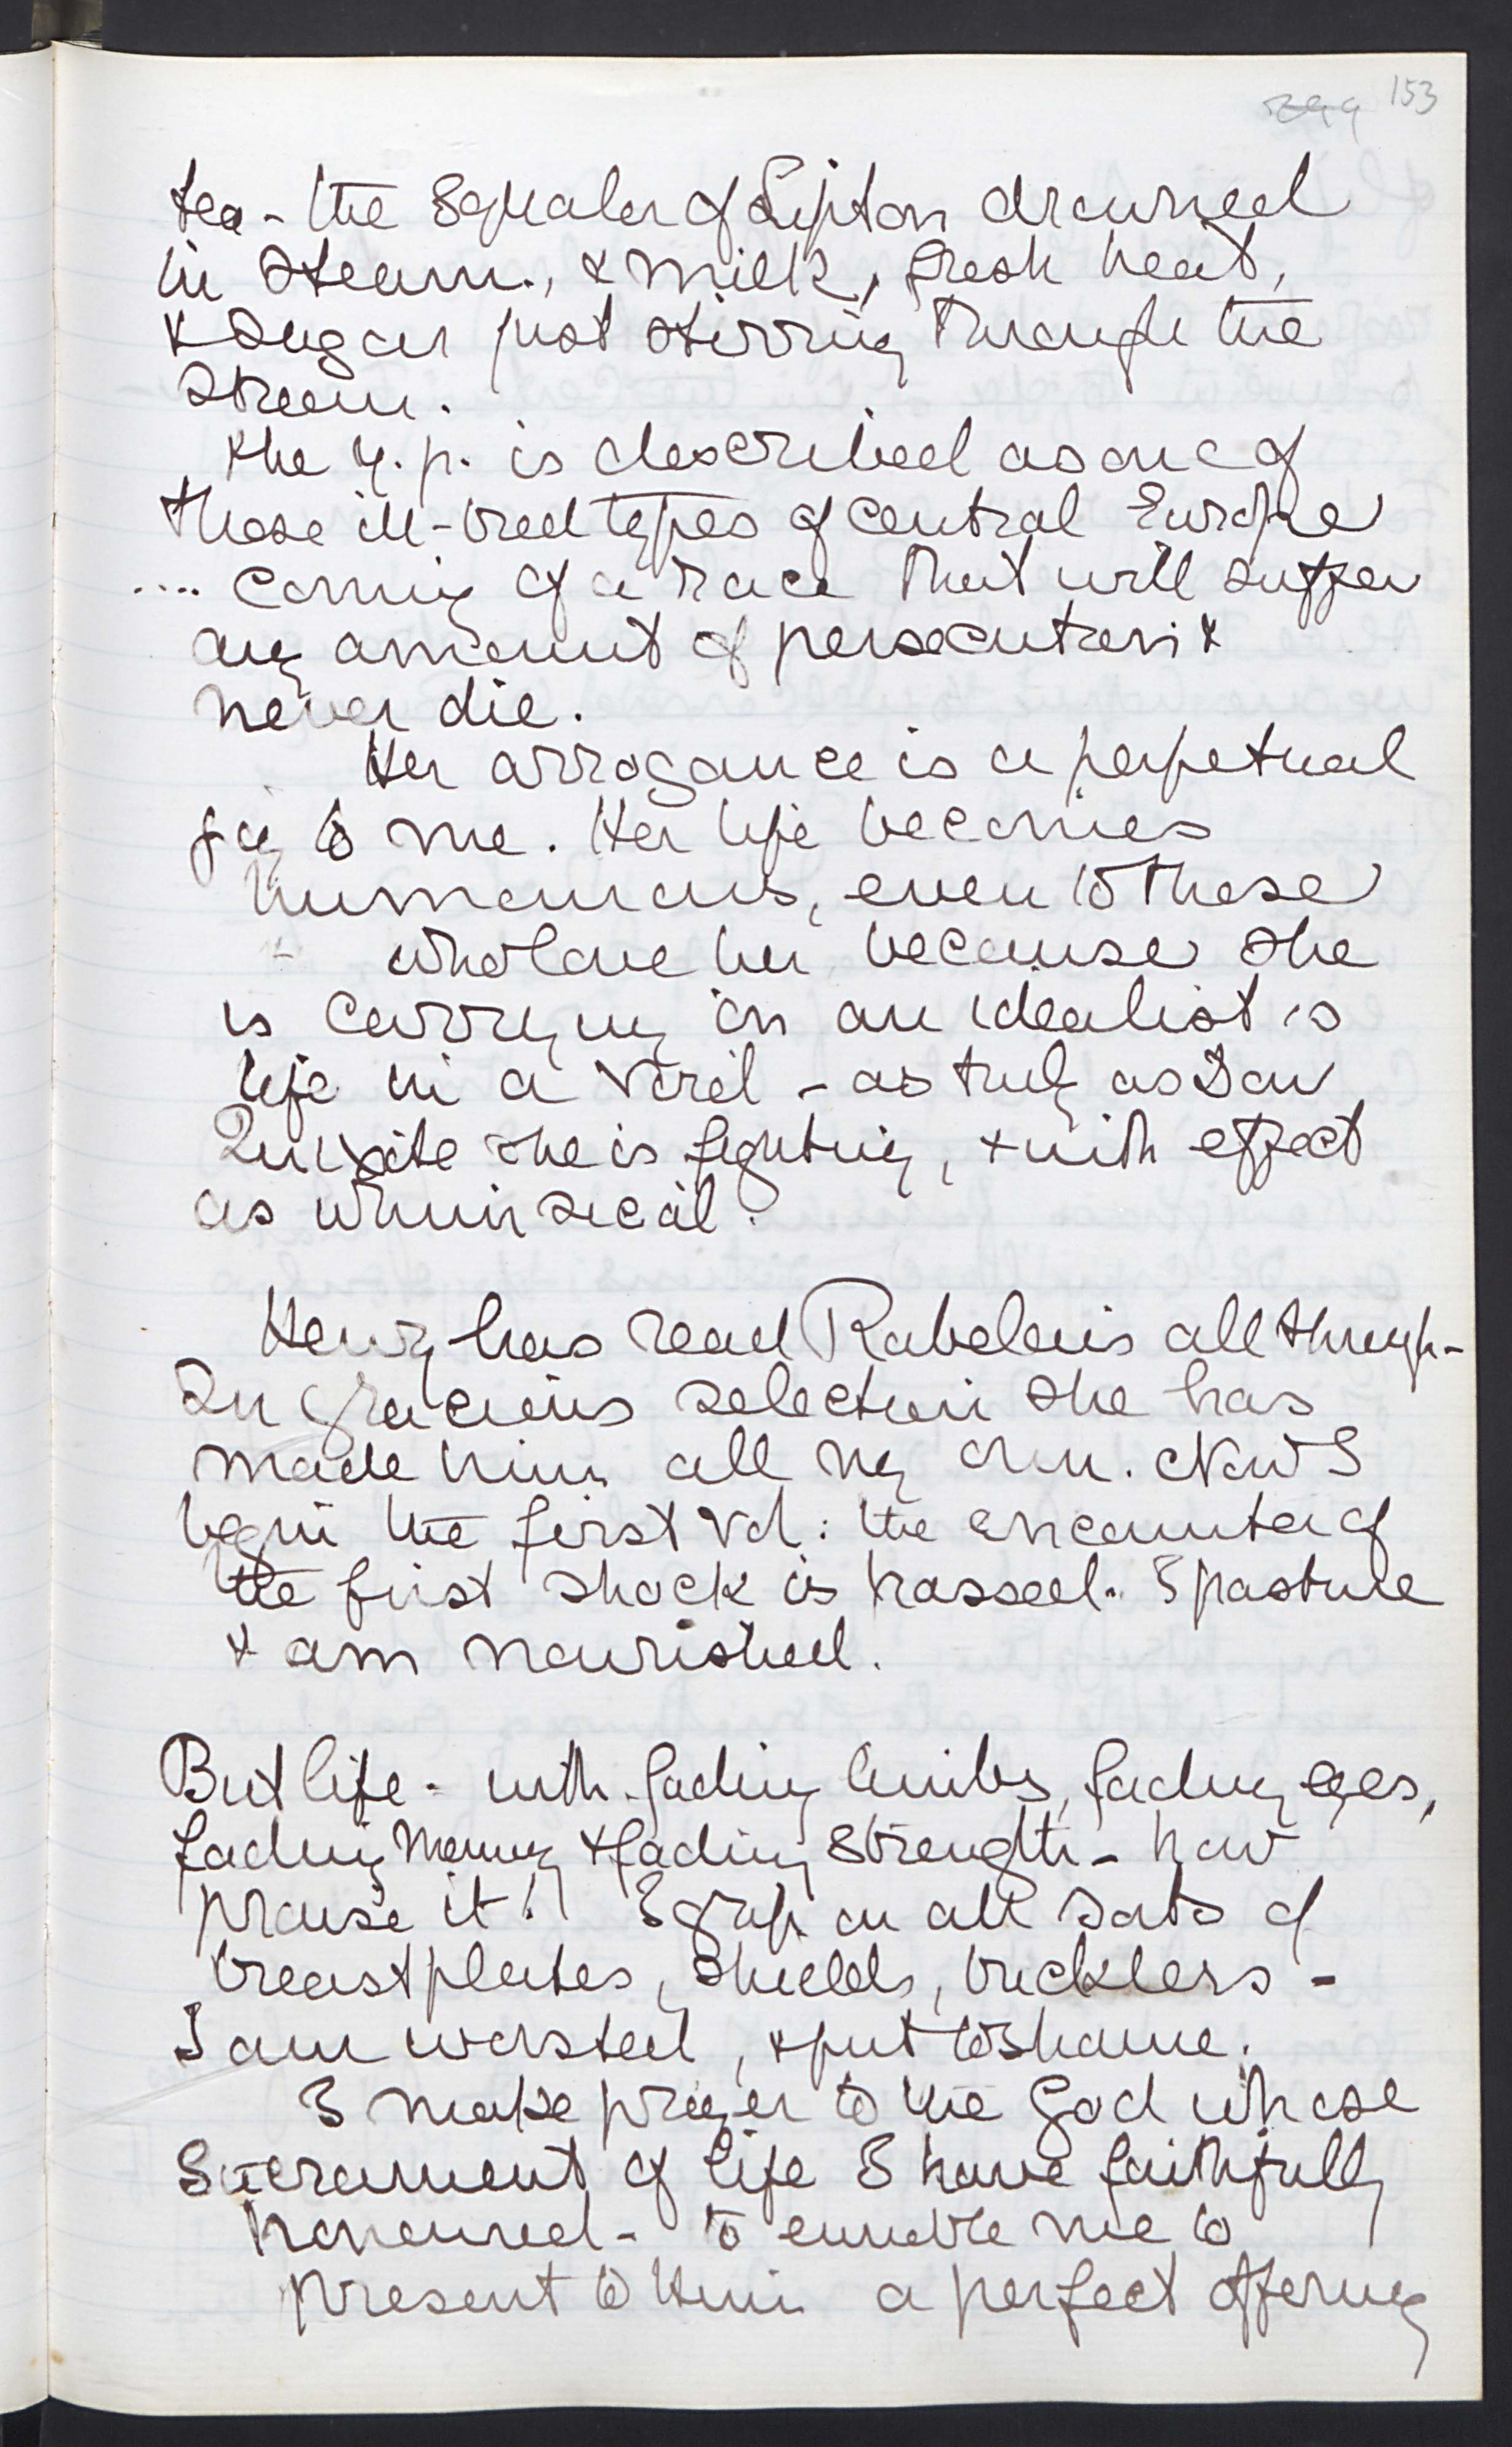 153
tea - the squalor of Lipton drowned
in steam., & milk, fresh heat,
& sugar just stirring through the
stream.
The y. p. is described as one of
those ill-bred types of central Europe
.... coming of a race that will suffer
any amount of persecution &
never die.
Her arrogance is a perpetual
joy to me. Her life becomes
humourous, even to those
who love her because she
is carrying on an idealist's
life in a void - as truly as Don
Quixote she is fighting, & with effect
as whimsical.
Henry has read Rabelais all through -
In gracious selection she has
made him all my own. Now I
begin the first vol: the encounter of
the first shock is passed. I pasture
& am nourished.
But life - with fading limbs, fading eyes,
fading memory & fading strength - how
praise it! I grip on all sorts of
breastplates, shields, bucklers -
I am worsted, & put to shame.
I make prayer to the God whose
Sacrament of life I have faithfully
honoured - to enable me to
present to Him a perfect offering